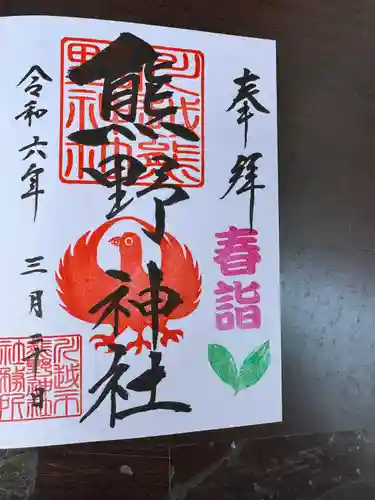 奉拝
春詣
川越熊野神社
熊野神社
令和六年 三月二十日
川越市
熊野神社
社務所